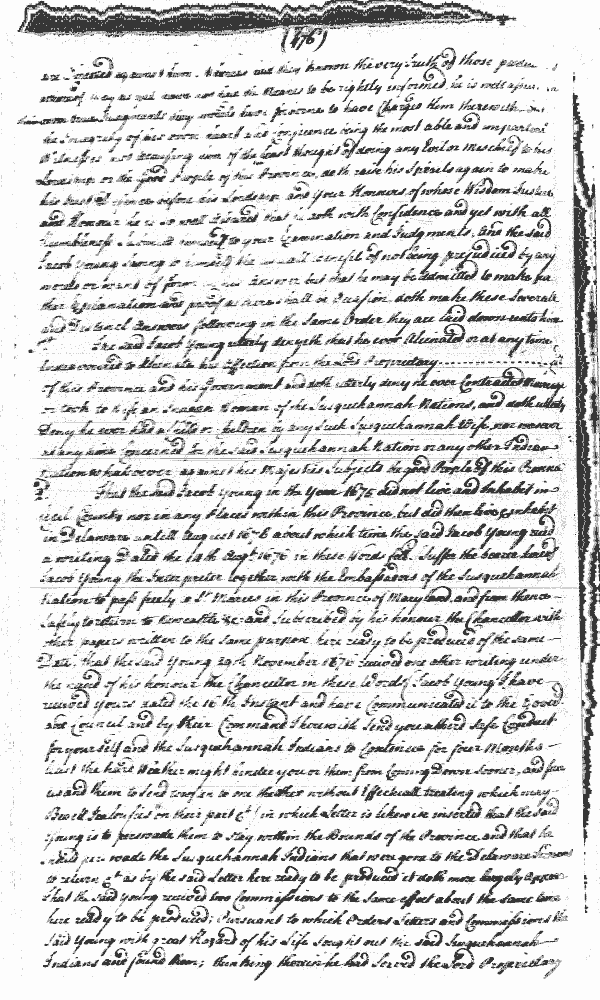 (476)
are against him. Whereas had they known the very truth of those
as well have the Means to be rightly informed, he is well
would have forborne to have Charged him therewith
the Integrity of his own heart and Conscience being the most able and impartial
Witnesses not accusing him of the least thought of doing any Evil or Mischief to his
Lordship or the good People of this Province, doth raise his Spirits again to make
his Just defence before his Lordship and Your Honours of whose Wisdom Justice
and Honour he is so well assured that he doth with Confidence and yet with all
humbleness submit himself to your Examination and Judgments. And the said
Jacob Young saving to himself the benefit of not being prejudiced by any
words or want of form answer but that he may be admitted to make such
that Explanation and proof as there shall be Occasion doth make these Severall
and Distinct answers following in the Same Order they are laid down unto him
The said Jacob Young utterly denyeth that he ever Alienated or at any time
Endeavoured to Alienate his Affection from the Lord Proprietary
of this Province and his Government and doth utterly deny he ever Contracted Marriage
or took to Wife an Indian Woman of the Susquehannah Nations, and doth utterly
Deny he ever had a Child or Children by any such Susquehannah Wife, nor was ever
at any time Concerned for the said Susquehannah Nation or any other Indian
Nation whatsoever against his Majesties Subjects the good People of this Province
That the said Jacob Young in the Year 1675 did not live and Inhabit in
Cecil County nor in any Places within this Province, but did then live & inhabit
in Delaware untill August 1676 about which time the said Jacob Young recd
a writing Dated the 14th Augt 1676 in these Words foll. Suffer the bearer hereof
Jacob Young the Interpreter together with the Embassadors of the Susquehannah
Nation to pass freely to St Maries in this Province of Maryland, and from thence
Safely to return to Newcastle &c and Subscribed by his honour the Chancellor with
other papers written to the same purpose here ready to be produced of the same
Date. That the said Young 29th November 1676 received one other writing under
the hand of his honour the Chancellor in these Words (Jacob Young I have
received yours dated the 16th Instant and have Communicated it to the Governr
and Council and by their Command I herewith Send you a third Safe Conduct
for your Self and the Susquehannah Indians to Continue for four Months
least the hard Weather might hinder you or them from Coming Down sooner, and for
us and them to send too often to one the other without Effectuall treating which may
Breed Jealousies on their part &c.) in which Letter is likewise inserted that the said
Young is to perswade them to Stay within the Bounds of the Province and that he
should perswade the Susquehannah Indians that were gone to the Delaware
to return &c as by the said Letter here ready to be produced it doth more largely Appear
That the said Young received two Commissions to the Same effect about the same time
here ready to be produced; Pursuant to which Orders Letters and Commissions the
Said Young with great Hazard of his Life Sought out the said Susquehannah
Indians and found them; thinking therein he had Served the Lord Proprietary